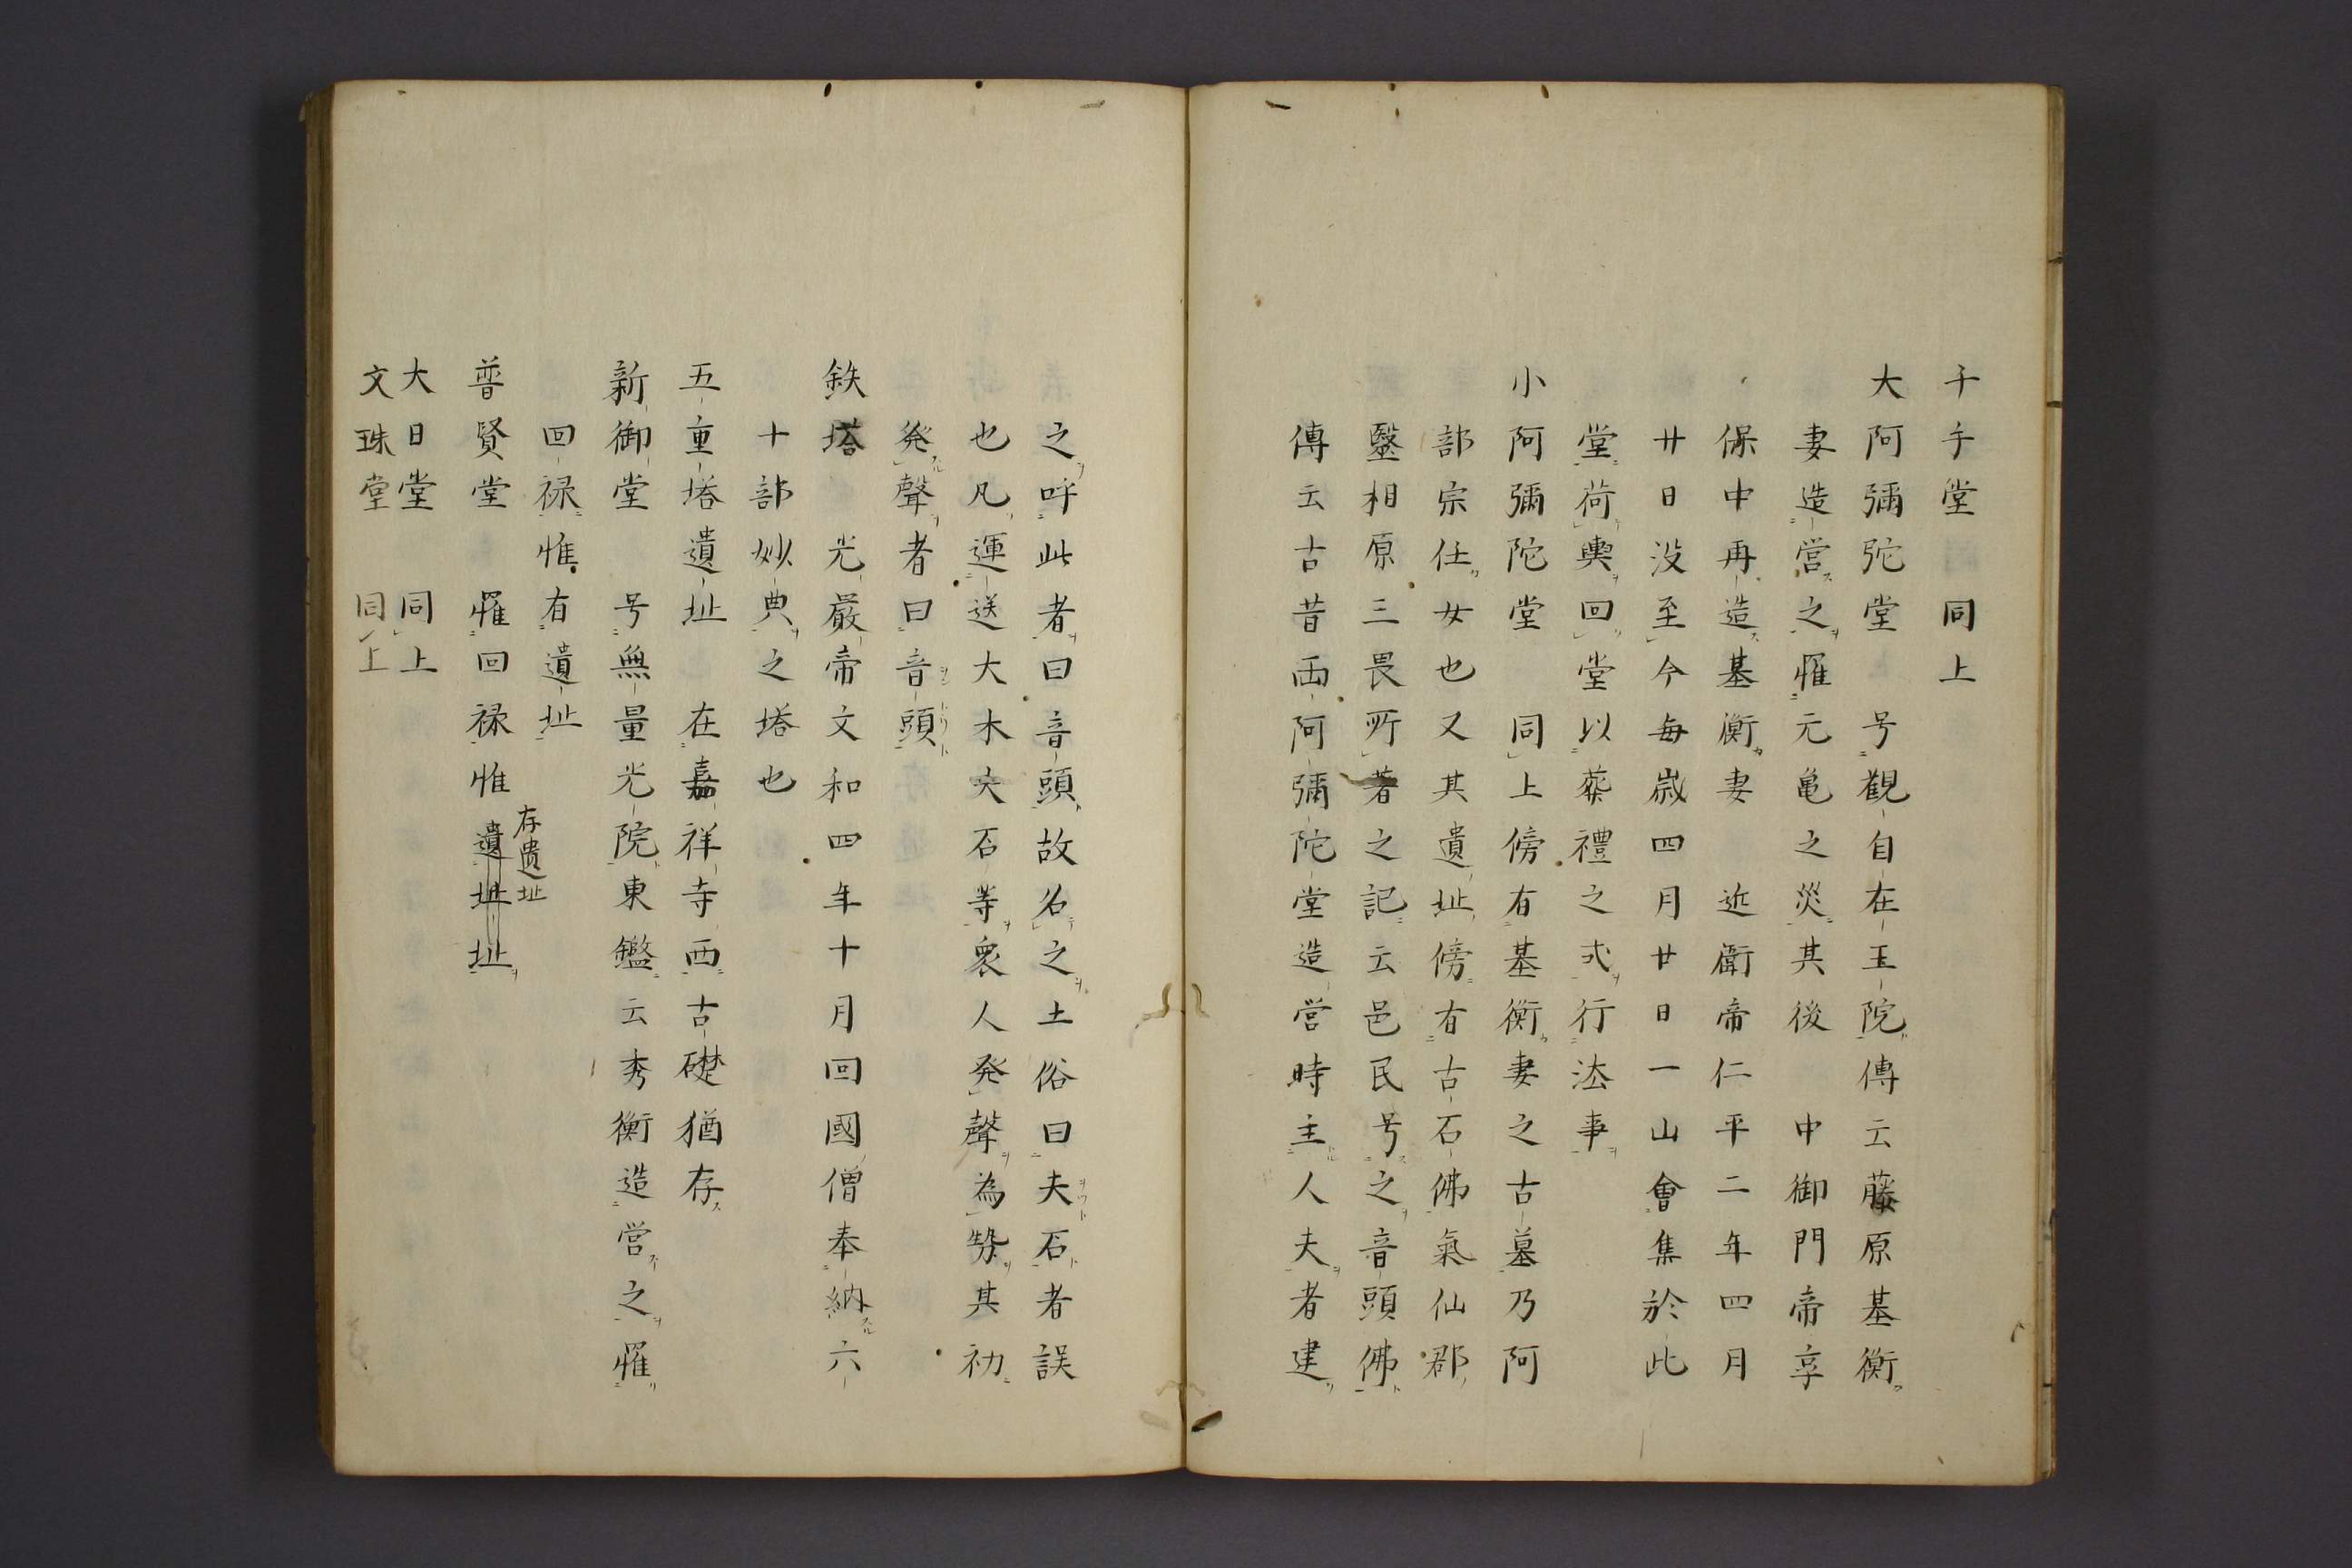 千手堂　同上
大阿彌陀堂　号觀自在王院傳云藤原基衡
妻造営之罹元亀之災其後　中御門帝享
保中再造基衡妻　近衛帝仁平二年四月
廿日没至今毎歳四月廿日一山會集於此
堂荷輿回堂以葬禮之式行法事
小阿彌陀堂　同上傍有基衡妻之古墓乃阿
部宗任女也又其遺址傍有古石佛氣仙郡
醫相原三畏所著之記云邑民号之音頭佛
傳云古昔両阿彌陀堂造営時主人夫者建
之呼此者曰音頭故名之土俗曰夫石者誤
也凡運送大木大石等衆人発聲為勢其初
発聲者曰音頭
鉄塔　光厳帝文和四年十月回國僧奉納六
十部妙典之塔也
五重塔遺址　在嘉祥寺西古礎猶存
新御堂　号無量光院東鑑云秀衡造営之罹
回禄惟有遺址
普賢堂　罹回禄惟遺址址
存遺址
大日堂　同上
文珠堂　同上